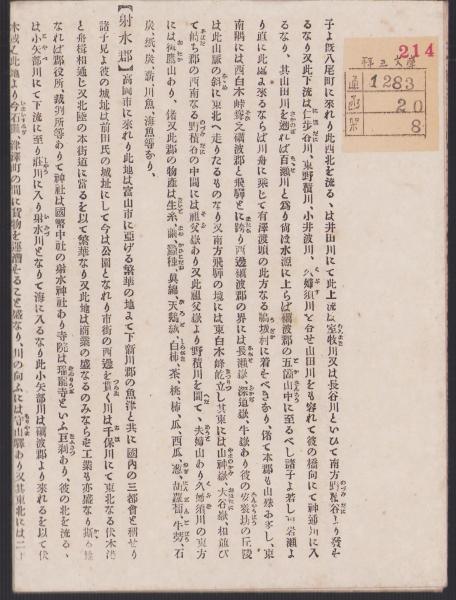 子よ既八尾町に來れり此西北を流るゝは井田川にて此上流は室牧川又は長谷川といひて南方野積谷より發せ
るなり又此下流は仁歩谷川、東野積川、小井波川、久婦須川と合せ山田川をも容れて彼の橋向にて神通川に入
るなり、其山田川を遡れば百瀬川と爲り尚ほ水源に上らば礪波郡の五箇山中に至るべし諸子よ若し
り直に此處よ來るならば川舟に乘じて有澤渡頭の此方なる鵜坂村に着そべきなり、偖て本郡も山殊お多し、東
南隅には西白木峰聳之礪波郡と飛驒とに跨り西邊礪波郡の界には長瀬嶽、深道嶽、牛嶽あり彼の安養坊の丘陵
は此山脈の斜に東北へ走りたるものなり又南方飛驒の境には東白木峰屹立し其東には山神嶽、大谷嶽、相並び
て峙ち郡の西南なる野積谷の中間には祖父嶽あり又此祖父嶽より野積川を間て、夫婦山あり久婦須川の東方
には御鷹山あり、偖又此郡の物產は生糸、繭、蠶種、眞綿、天鵞絨、白柿、茶、桃、柿、瓜、西瓜、葱、胡蘿蔔、牛蒡、石
炭、紙、炭、薪、川魚、海魚等なり、
【射水郡】高岡市に來れり此地は富山市に亞げる繁華の地まて下新川郡の魚津と共に國內の三都會と稱せり
諸子見よ彼の城址は前田氏の城址にして今は公園となれり市街の西邊を貫く川は千保川にて東北なる伏木港
と舟楫相通じ又北陸の本街道に當るを以て繁華なり又此地は商業の盛なるのみなら老工業も亦盛なり
なれば郡役所、裁判所等ありて神社は國幣中社の射水神社あり寺院は瑞龍寺といふ巨刹あり、彼の北を流るゝ
は小矢部川にて下流に至り莊川に入り射水川となりて海に入るなり此小矢部川は礪波郡より來れるを以て伏
木或之此地より今石動、津澤町の間に貨物を運漕せること盛なり、川の向ふには守山驛あり又其東北には二
214
1283
20
8